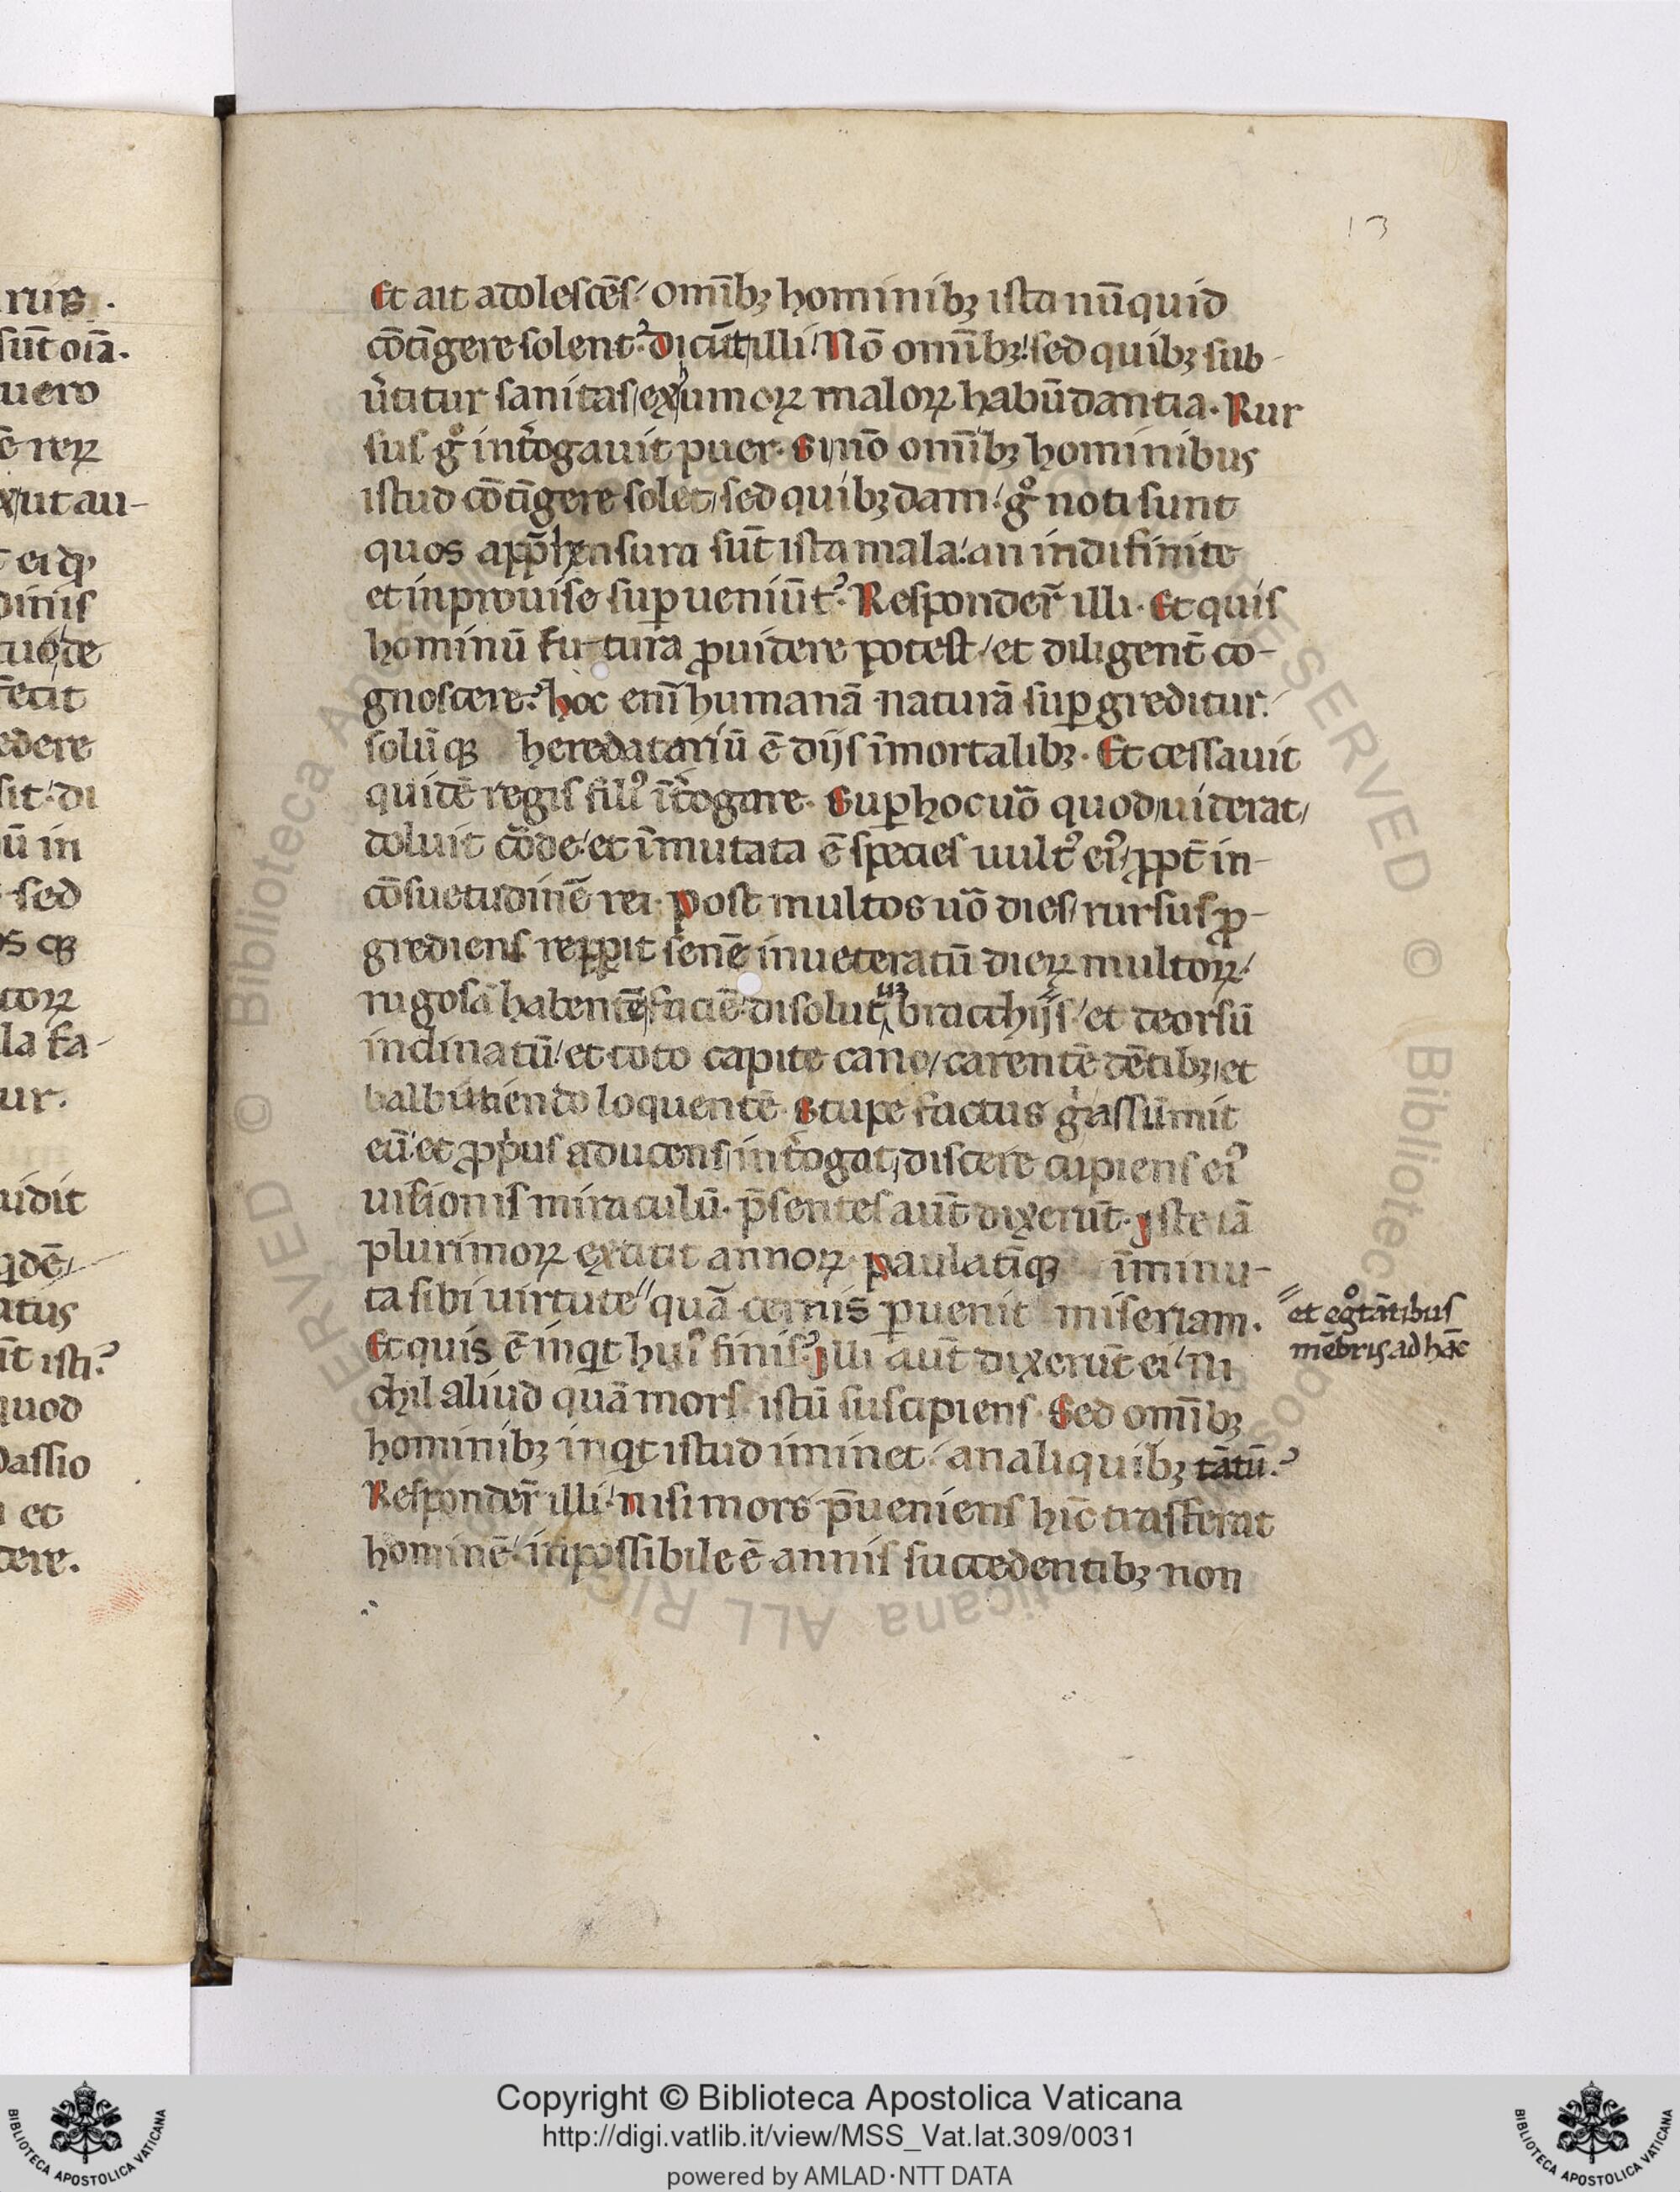 rus .
sūt oīa.
uero
ē rerꝝ
ut au-
diniis
tuode
fecit
edere
sit: di
ū in
sed
torꝝ
la fa-
ur.
udit
qdē
atus
isti?
quod
passio
et
cere.
13
Et ait adolescēs: omībꝫ hominibꝫ ista nūquid
cōtīgere solent? dicūt illi: Nō omībꝫ: sed quibꝫ sub-
ūtitur sanitas ex humorꝝ malorꝝ habūdantia. Rur
sus gͦ int̉rogauit puer. Si nō omībꝫ hominibus
istud cōtīgere solet, sed quibꝫdam: gͦ noti sunt
quos app̄hensura sūt ista mala: an indifinite
et inprouise suꝑueniūt? Respondeꝝ illi. Et quis
hominū futura ꝓuidere potest, et diligent̄ co-
gnoscere? hoc enī humanā naturā suꝑgreditur.
solūqꝫ hereditariū ē dijs īmortalibꝫ. Et cessauit
quidē regis filiꝰ īt̉rogare. Suꝑ hoc uō quod uiderat,
doluit corde: et īmutata ē species uultꝰ eiꝰ, ꝓpt̄ in-
cōsuetudinē rei. Post multos uō dies, rursus ꝓ-
grediens repꝑit senē inueteratū dierꝝ multorꝝ:
rugosā habentē faciē: disolutis bracchijs: et deorsū
inclinatū: et toto capite cano, carentē dētibꝫ, et
balbutiendo loquentē. Stupefactus gͥ assūmit
eū: et ꝓpius aducens, int̉rogat, discere cupiens eiꝰ
uisionis miraculū. p̄sentes aut̄ dixerūt. Iste iā
plurimorꝝ extitit annorꝝ. paulatīqꝫ īminu-
ta sibi uirtute quā cernis ꝑuenit miseriam.
et egͦtātibus
mēbris ad hāc
Et quis ē inqͥt huiꝰ finis? Illi aut̄ dixerūt ei: Ni
chil aliud quā mors istū suscipiens. Sed omībꝫ
hominibꝫ inqͥt istud iminet: an aliquibꝫ tātū?
Respondeꝝ illi: nisi mors p̄ueniens hīc trasferat
hominē: inpossibile ē annis succedentibꝫ non
Copyright © Biblioteca Apostolica Vaticana
http://digi.vatlib.it/view/MSS_Vat.lat.309/0031
powered by AMLAD·NTT DATA
BIBLIOTECA APOSTOLICA VATICANA
BIBLIOTECA APOSTOLICA VATICANA